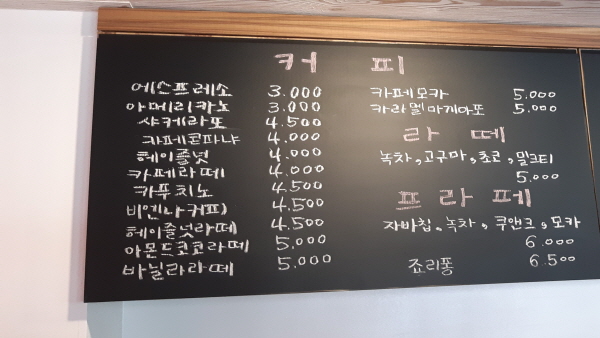 커피
에스프레소 3.000
아메리카노 3.000
샤케라또 4.500
카페콘파냐 4.000
헤이즐넛 4.000
카페라떼 4.000
카푸치노 4.500
비엔나커피) 4.500
헤이즐넛라떼 4.500
아몬드코코라떼 5.000
바닐라라떼 5.000
카페모카 5.000
카라멜마끼아또 5.000
라떼
녹차, 고구마, 초코, 밀크티
5.000
프라페
자바칩, 녹차, 쿠앤크, 모카
6.000
죠리퐁 6.500